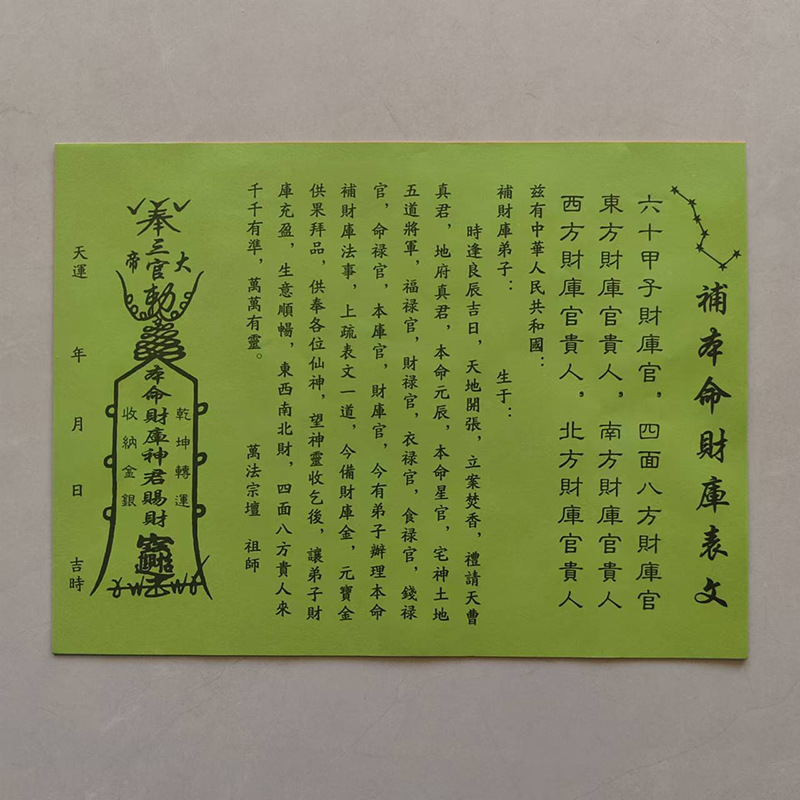 補本命財庫表文
六十甲子財庫官，四面八方財庫官
東方財庫官貴人，南方財庫官貴人
西方財庫官貴人，北方財庫官貴人
兹有中華人民共和國：
補財庫弟子：　生于：
時逢良辰吉日，天地開張，立案焚香，禮請天曹
真君，地府真君，本命元辰，本命星官，宅神土地
五道將軍，福禄官，財禄官，衣禄官，食禄官，錢禄
官，命禄官，本庫官，財庫官，今有弟子辦理本命
補財庫法事，上疏表文一道，今備財庫金，元寶金
供果拜品，供奉各位仙神，望神靈收乞後，讓弟子財
庫充盈，生意順暢，東西南北財，四面八方貴人來
千千有準，萬萬有靈。　萬法宗壇　祖師
奉
三官大帝
勅
乾坤轉運
本命財庫神君賜財
收納金銀
天運　年　月　日　吉時